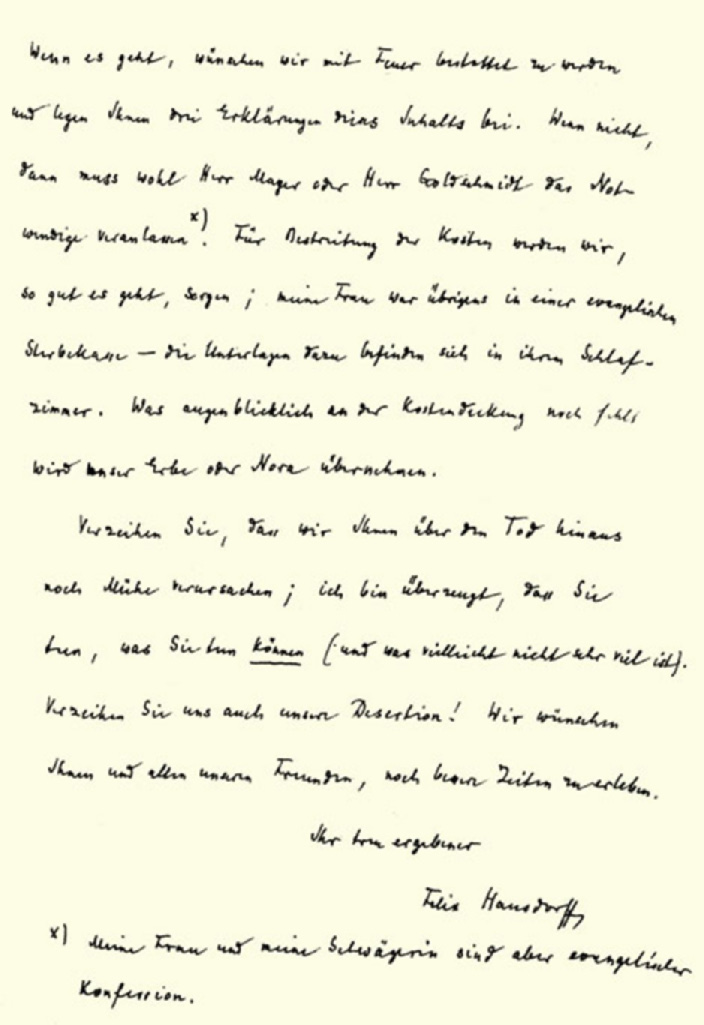 Wenn es geht, wünschen wir mit Feuer bestattet zu werden
und legen Ihnen drei Erklärungen dieses Inhalts bei. Wenn nicht,
dann muss wohl Herr Mayer oder Herr Goldschmidt das Not-
wendige veranlassen x). Für Bestreitung der Kosten werden wir,
so gut es geht, sorgen; meine Frau war übrigens in einer evangelischen
Sterbekasse — die Unterlagen dazu befinden sich in ihrem Schlaf-
zimmer. Was augenblicklich an der Kostendeckung noch fehlt
wird unser Erbe oder Nora übernehmen.
Verzeihen Sie, dass wir Ihnen über den Tod hinaus
noch Mühe verursachen; ich bin überzeugt, dass Sie
tun, was Sie tun können (und was vielleicht nicht sehr viel ist).
Verzeihen Sie uns auch unsere Desertion! Wir wünschen
Ihnen und allen unseren Freunden, noch bessere Zeiten zu erleben.
Ihr treu ergebener
Felix Hausdorff
x) Meine Frau und meine Schwägerin sind aber evangelischer
Konfession.